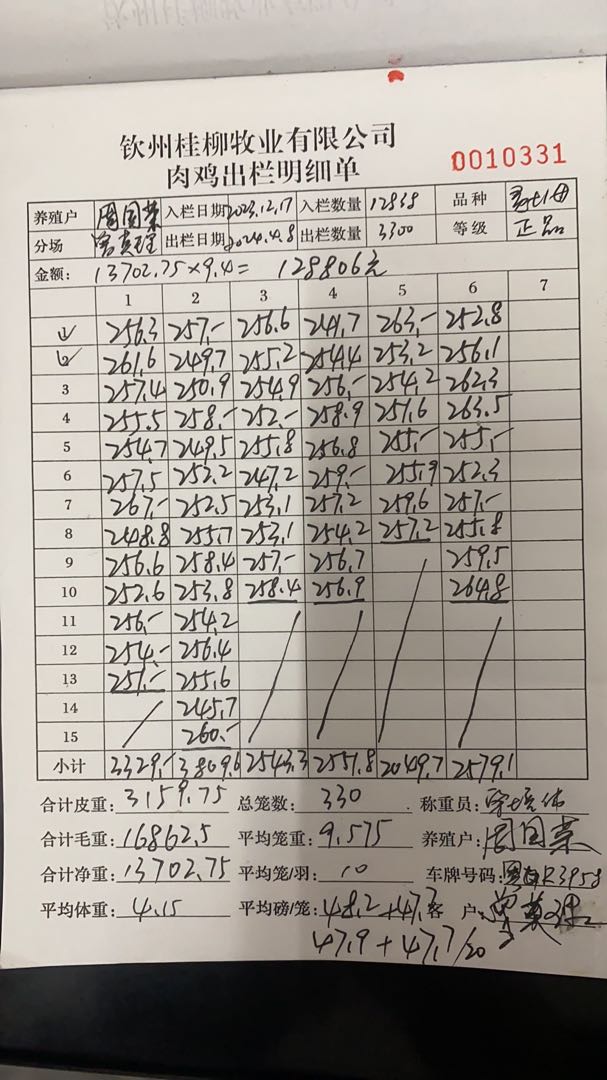 钦州桂柳牧业有限公司
肉鸡出栏明细单
0010331
养殖户 周国荣 入栏日期 2023.12.17 入栏数量 12838 品种
分场 出栏日期 2024.4.8 出栏数量 3300 等级 正品
金额: 13702.75×9.4= 128806元
1 2 3 4 5 6 7
① 256.3 257.- 256.6 241.7 263.- 252.8
2 261.6 249.7 255.2 254.4 253.2 256.1
3 257.4 250.9 254.9 256.- 254.2 262.3
4 255.5 258.- 252.- 258.9 251.6 263.5
5 254.7 249.5 255.8 256.8 255.- 255.-
6 257.5 252.2 247.2 259.- 255.9 252.3
7 267.- 252.5 253.1 257.2 259.6 257.-
8 248.8 255.7 253.1 254.2 257.2 255.8
9 256.6 258.4 257.- 256.7 259.5
10 252.6 253.8 258.4 256.9 264.8
11 256.- 254.2
12 254.- 256.4
13 251.- 255.6
14 245.7
15 260.-
小计 3329.- 3809.6 2543.3 2551.8 2049.7 2579.1
合计皮重: 3159.75 总笼数: 330 称重员:
合计毛重: 16862.5 平均笼重: 9.575 养殖户: 周国荣
合计净重: 13702.75 平均笼/羽: 10 车牌号码: R3958
平均体重: 4.15 平均磅/笼: 48.2+47.7 客 户:
47.9+47.7/20